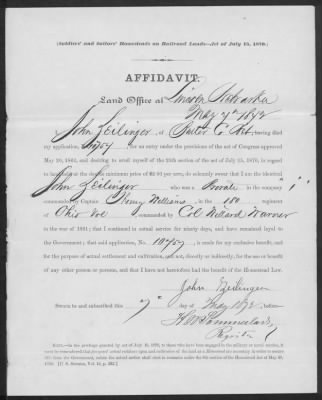 (Soldiers' and Sailors' Homesteads on Railroad Lands—Act of July 15, 1870.)
AFFIDAVIT.
Land Office at Lincoln Nebraska
May 7th 1872
I, John Zeilinger, of Butler C Neb, having filed
my application, No. 10707, for an entry under the provisions of the act of Congress approved
May 20, 1862, and desiring to avail myself of the 25th section of the act of July 15, 1870, in regard
to land held at the double minimum price of $2.50 per acre, do solemnly swear that I am the identical
John Zeilinger who was a Private in the company "i"
commanded by Captain Henry Williams, in the 180 regiment
of Ohio Vol, commanded by Col Willard Warner
in the war of 1861; that I continued in actual service for ninety days, and have remained loyal
to the Government; that said application, No. 10707, is made for my exclusive benefit, and
for the purpose of actual settlement and cultivation, and not, directly or indirectly, for the use or benefit
of any other person or persons, and that I have not heretofore had the benefit of the Homestead Law.
John Zeilinger
Sworn to and subscribed this 7th day of May 1872 before
Register
NOTE.—In the privilege granted by act of July 15, 1870, to those who have been engaged in the military or naval service, it